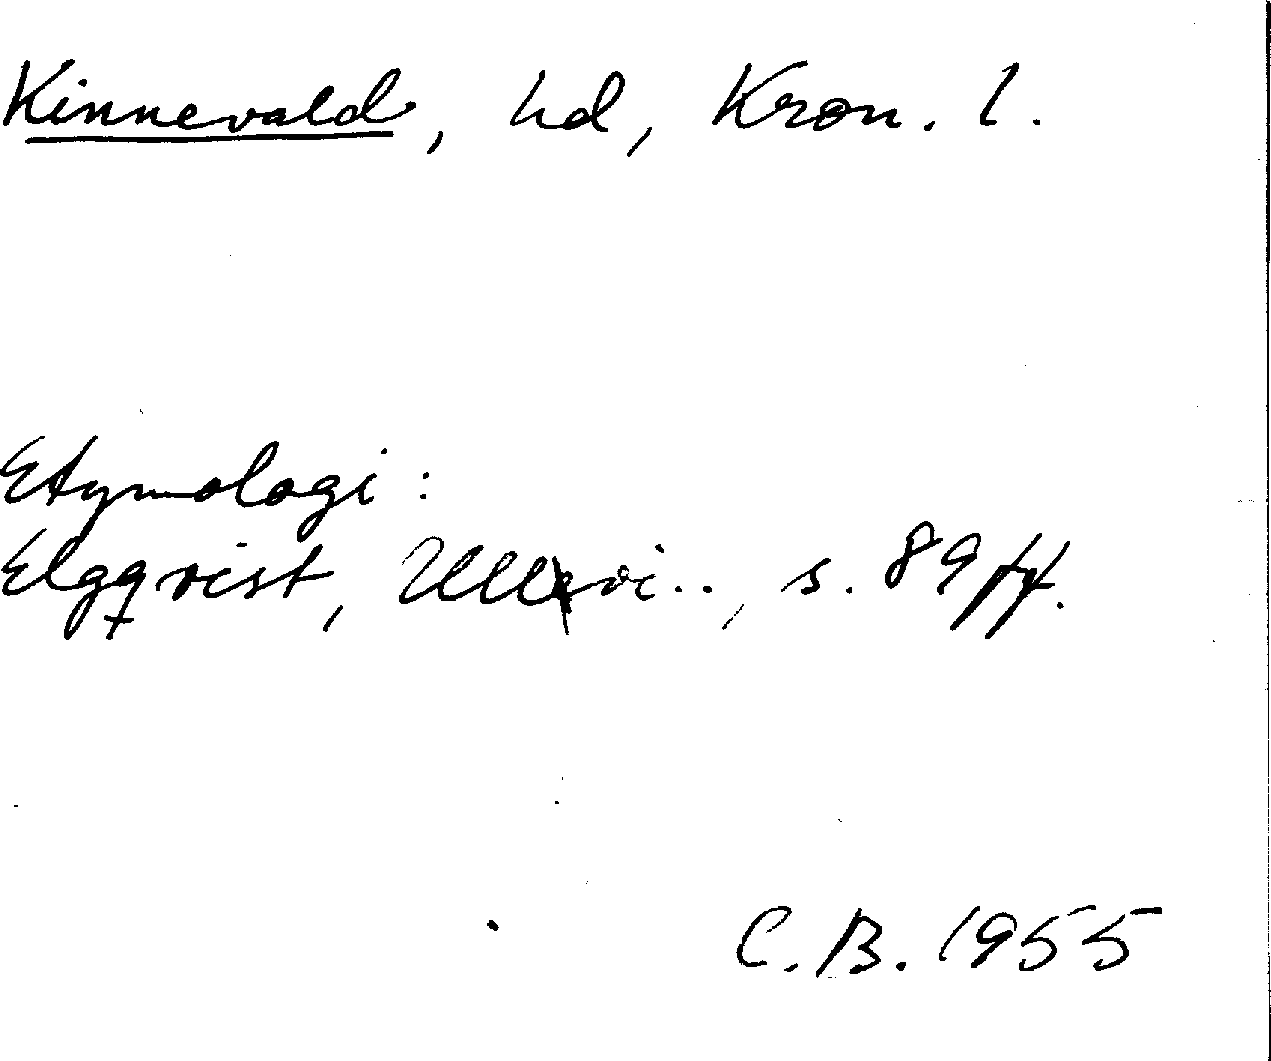 Kinnevald, hd, Kron. l.
Etymologi:
Elgqvist, Ullevi.., s. 89 ff.
C.B. 1955